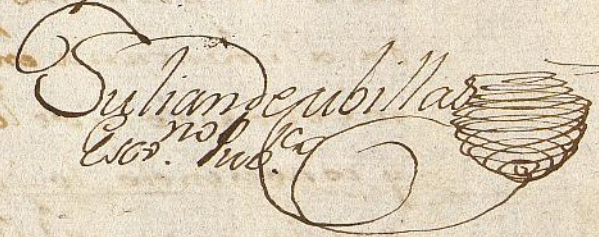 Julian de cubillas
Escr.no pub.co